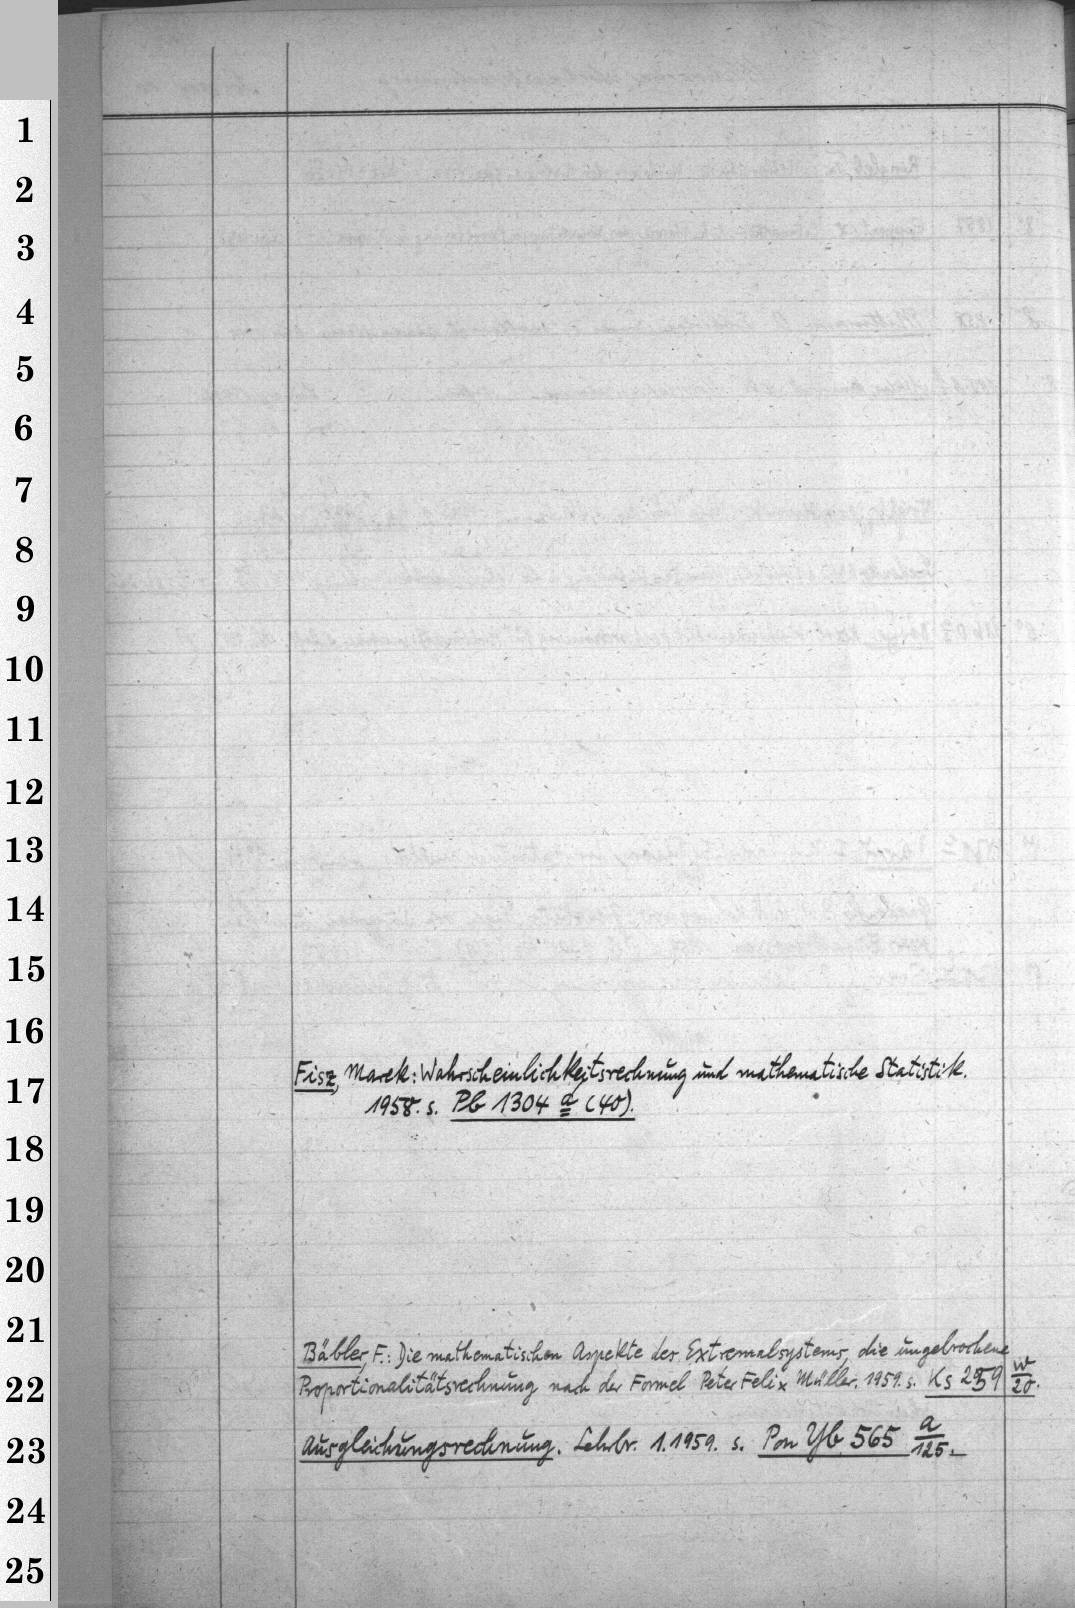 1
2
3
4
5
6
7
8
9
10
11
12
13
14
15
16
Fisz, Marek: Wahrscheinlichkeitsrechnung und mathematische Statistik.
17
1958. s. Pb 1304 a (40).
18
19
20
21
Bäbler, F.: Die mathematischen Aspekte des Extremalsystems, die ungebrochene
22
Proportionalitätsrechnung nach der Formel Peter Felix Müller. 1959. s. Ks 2959 w/20.
23
Ausgleichungsrechnung. Lehrbr. 1.1959. s. Pon Yb 565 a/125.
24
25